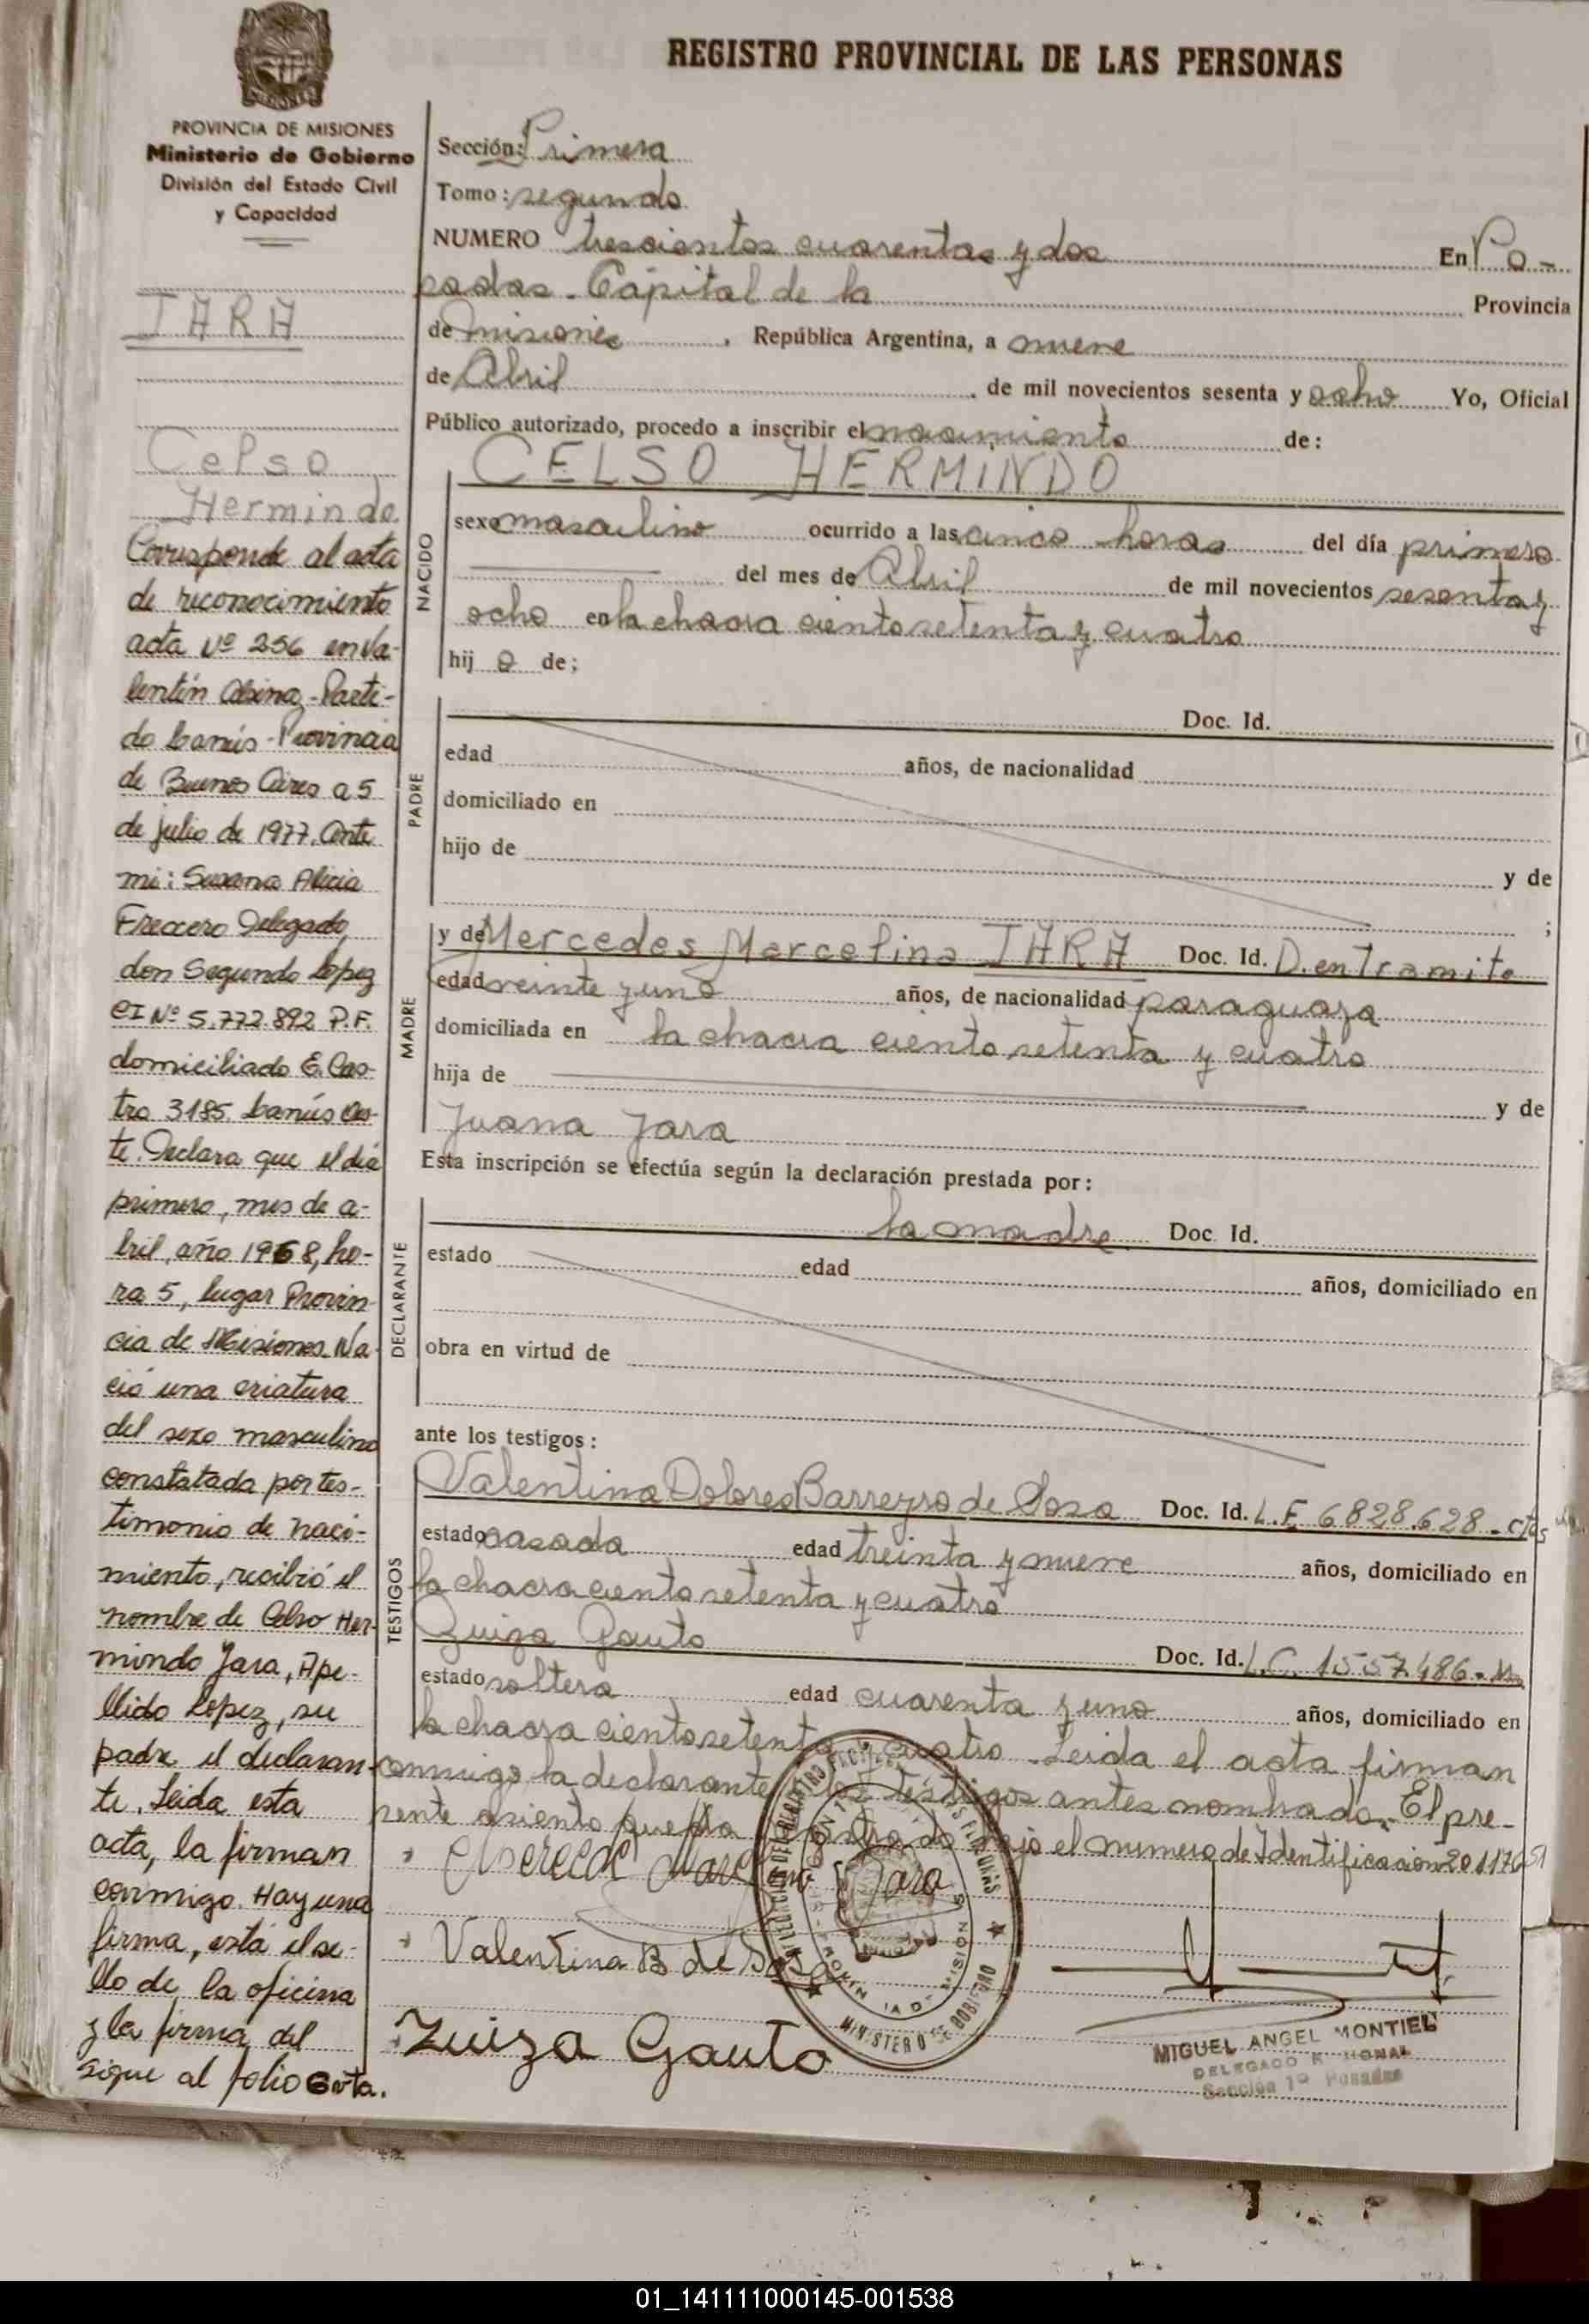 REGISTRO PROVINCIAL DE LAS PERSONAS
PROVINCIA DE MISIONES
Ministerio de Gobierno
División del Estado Civil
y Capacidad
JARA
Celso
Hermindo
Corresponde al acta
de reconocimiento
acta Nº 256 en Va-
lentín Alsina - Parti-
do Lanús - Provincia
de Buenos Aires a 5
de julio de 1977. Ante
mi: Susana Alicia
Freccero Delegado,
don Segundo Lopez
CI Nº 5.772.892 P.F.
domiciliado E. Cas-
tro 3185 Lanús Oes-
te. Declara que el día
primero, mes de a-
bril, año 1968, ho-
ra 5, lugar Provin-
cia de Misiones. Na-
ció una criatura
del sexo masculino
constatada por tes-
timonio de naci-
miento, recibió el
nombre de Celso Her-
mindo Jara, Ape-
llido Lopez, su
padre el declaran-
te. Leida esta
acta, la firman
conmigo. Hay una
firma, está el se-
llo de la oficina
y la firma del
sigue al folio
Sección: Primera
Tomo: segundo
NUMERO trescientos cuarentas y dos En Po-
sadas - Cápital de la Provincia
de Misiones , República Argentina, a nueve
de Abril , de mil novecientos sesenta y ocho Yo, Oficial
Público autorizado, procedo a inscribir el nacimiento de:
NACIDO
CELSO HERMINDO
sexo masculino ocurrido a las cinco horas del día primero
del mes de Abril de mil novecientos sesenta y
ocho en la chacra ciento setenta y cuatro
hij o de;
PADRE
Doc. Id.
edad años, de nacionalidad
domiciliado en
hijo de y de
;
MADRE
y de Mercedes Marcelina JARA Doc. Id. D. en Tramite
edad veinte y uno años, de nacionalidad paraguaya
domiciliada en la chacra ciento setenta y cuatro
hija de y de
Juana Jara
Esta inscripción se efectúa según la declaración prestada por:
DECLARANTE
la madre Doc. Id.
estado edad años, domiciliado en
obra en virtud de
ante los testigos:
TESTIGOS
Valentina Dolores Barreyro de Sosa Doc. Id. L.E 6828.628 - Ctes
estado casada edad treinta y nueve años, domiciliado en
la chacra ciento setenta y cuatro
Zuiza Gauto Doc. Id. L.C. 1557.486
estado soltera edad cuarenta y uno años, domiciliado en
la chacra ciento setenta y cuatro - Leida el acta firman
conmigo la declarante y los testigos antes nombrado. El pre-
sente asiento queda bajo el numero de Identificacion
Marcelina Jara
Valentina B de Sosa
Zuiza Gauto
MINISTERIO DE GOBIERNO
MIGUEL ANGEL MONTIEL
DELEGADO
Sección 1º Posadas
01_141111000145-001538